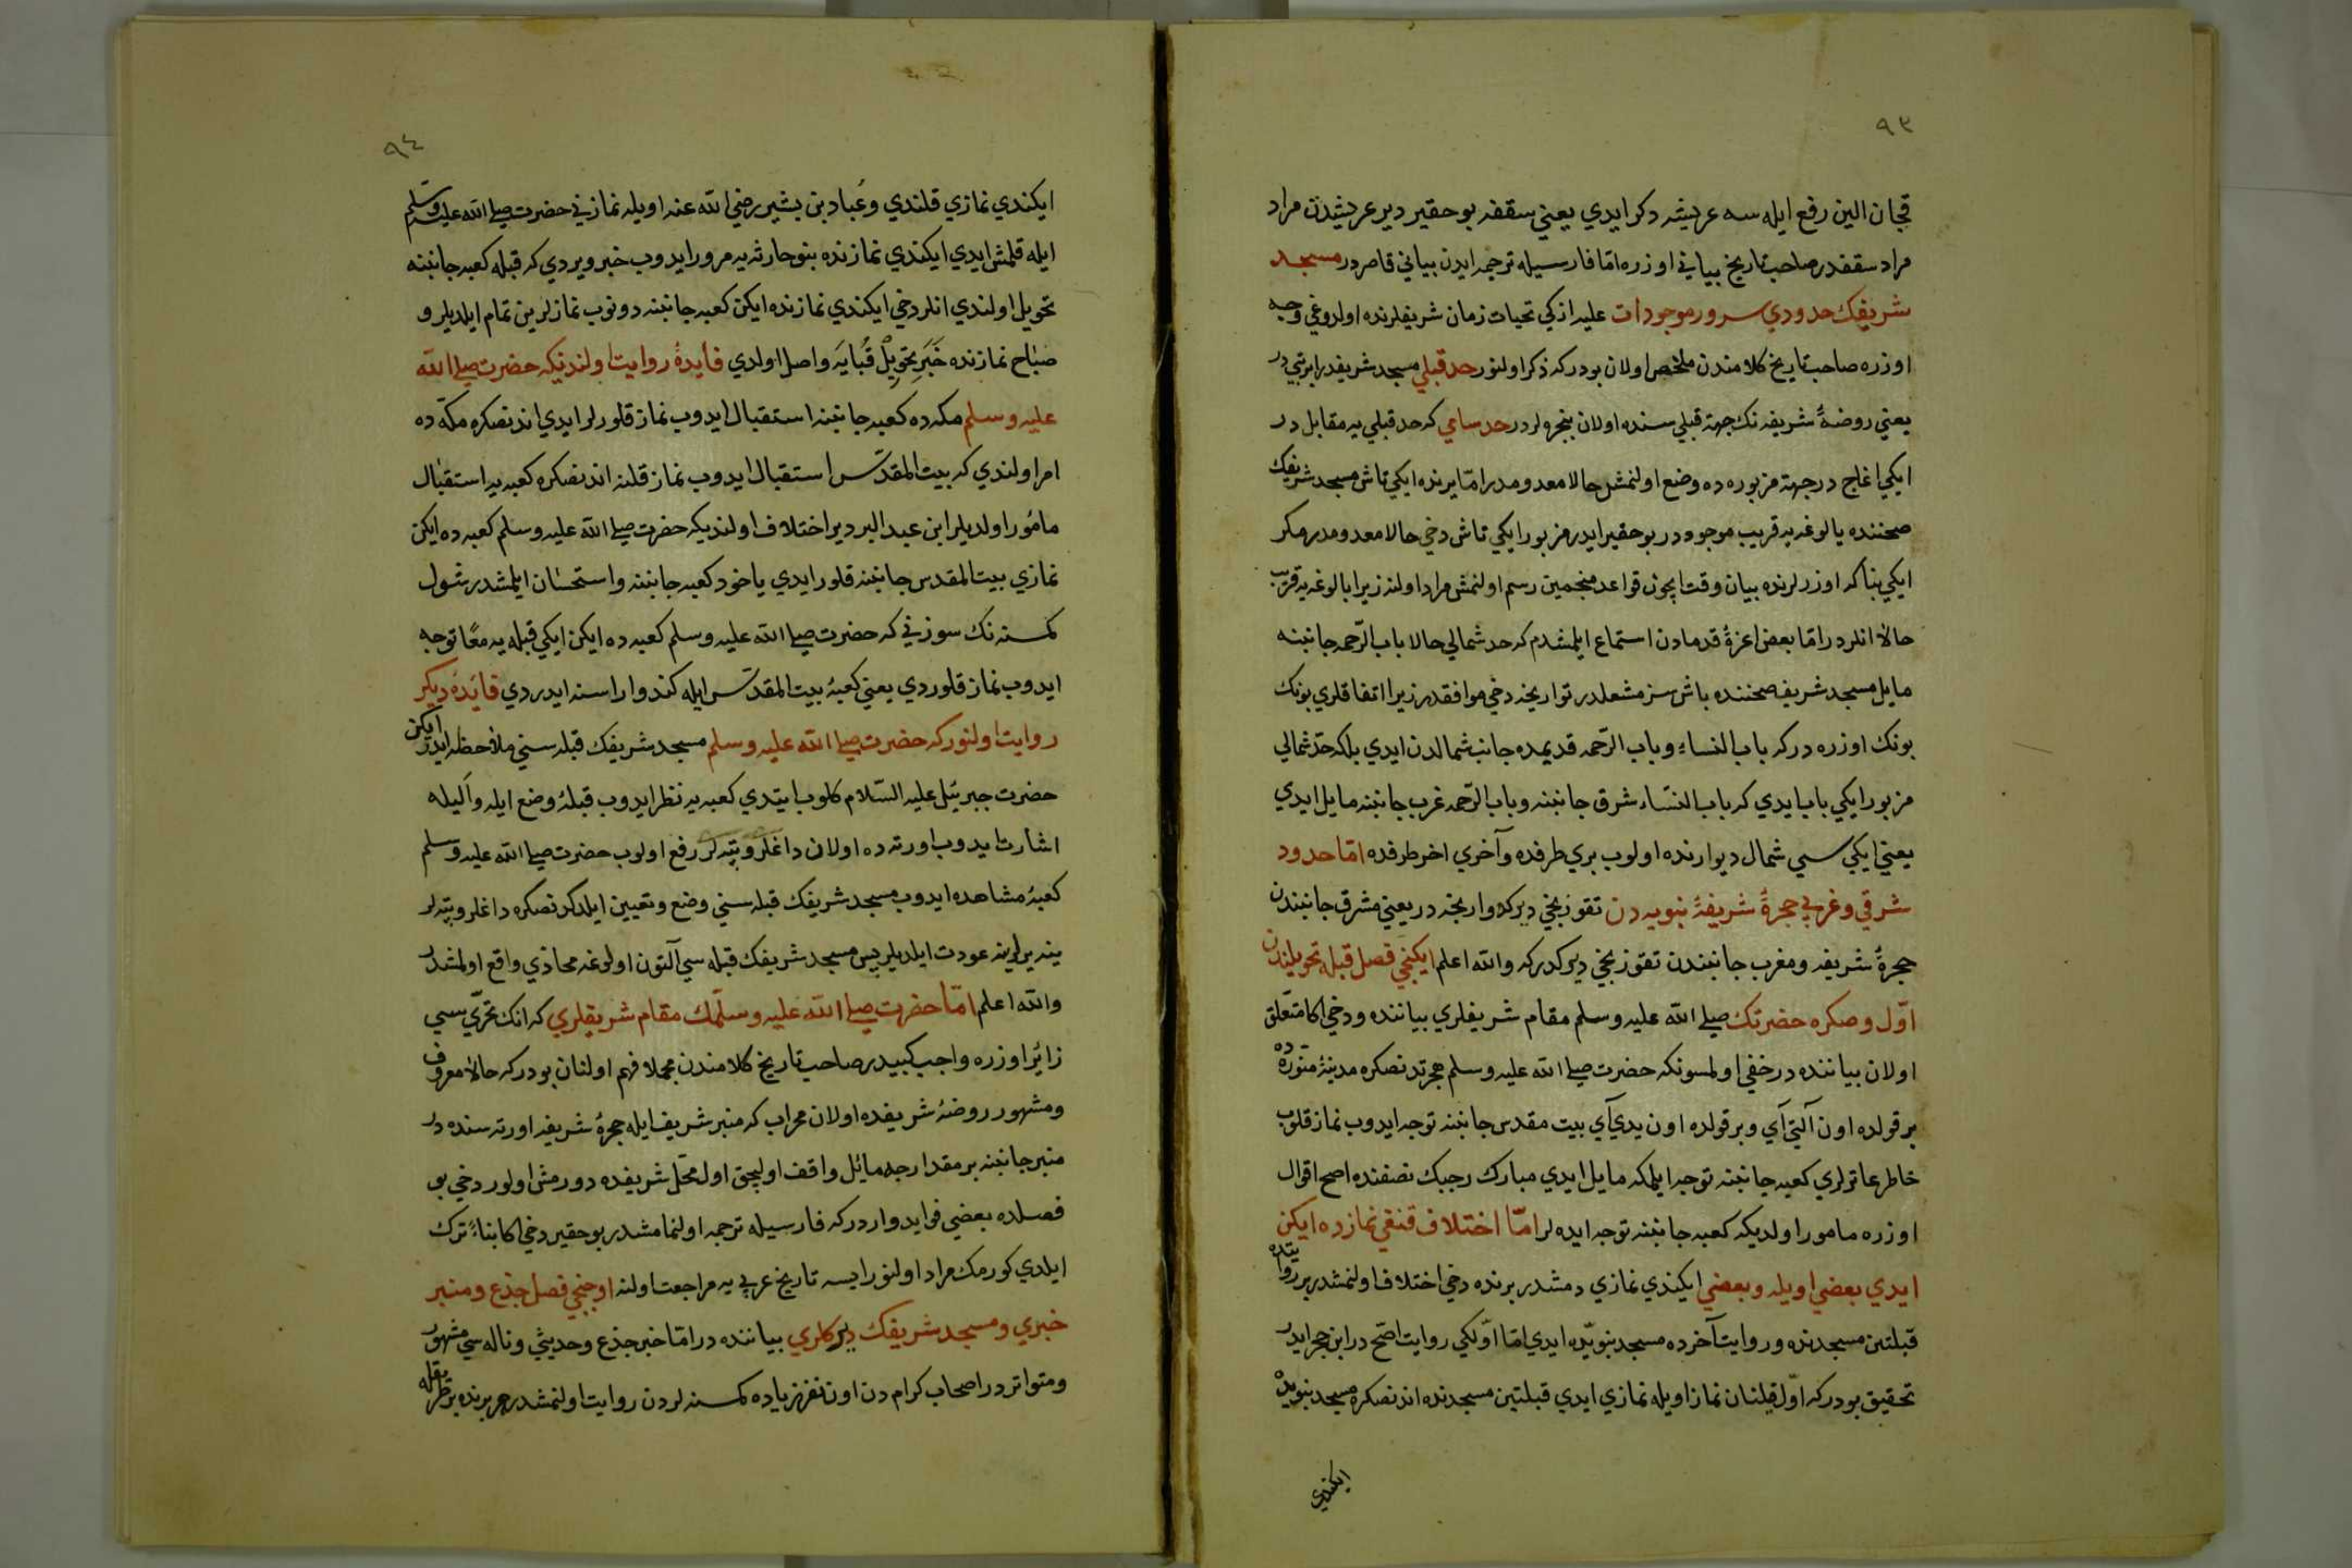 ٩٣
قچان الين رفع ايله سه عريشه دكر ايدي يعني سقفه بو حقير دير عريشدن مراد
مراد سقفدر صاحب تاريخ بياني اوزره امّا فارسيله ترجمه ايدن بياني قاصر در مسجد
شريفك حدودي سرور موجودات عليه ازكي تحيات زمان شريفلرنده اولدوغي وجه
اوزره صاحب تاريخ كلامندن ملخص اولان بودركه ذكر اولنور حد قبلي مسجد شريفد
يعني روضهٔ شريفه نك جهة قبلي سنده اولان پنجره لردر حد سامي كه حد قبلي يه مقابل در
ايكي اغاج در جهة مزبوره ده وضع اولنمش حالا معدومدر امّا يرنده ايكي تاش مسجد شريفك
صحننده بالوغه يه قريب موجوددر بو حقير ايدر مزبور ايكي تاش دخي حالا معدومدر مكر
ايكي بنا كه اوزرلرنده بيان وقت ايچون قواعد منجمين رسم اولنمش مراد اولنه زيرا بالوغه يه قريب
حالا انلردر امّا بعض اعزهٔ قدمادن استماع ايلمشدم كه حد شمالي حالا باب الرّحمه جانبنه
مايل مسجد شريفه صحننده باش سز مشعلدر تواريخه دخي موافقدر زيرا اتفاقلري بونك
بونك اوزره دركه باب النساء وباب الرّحمه قديمده جانب شمالدن ايدي بلكه حدّ شمالي
مزبور ايكي باب ايدي كه باب النسّاء شرق جانبنه وباب الرّحمه غرب جانبنه مايل ايدي
يعني ايكي سي شمال ديوارنده اولوب بري طرفده وآخري اخر طرفده امّا حدود
شرقي وغربي حجرهٔ شريفهٔ نبويه دن تقوزنجي ديركه واريخه در يعني مشرق جانبندن
حجرهٔ شريفه ومغرب جانبندن تقوزنجي ديركدركه والله اعلم ايكنجي فصل قبله تحويلندن
اوّل وصكره حضرتك صلى الله عليه وسلم مقام شريفلري بياننده ودخي اكا متعلّق
اولان بياننده در خفي اولمسونكه حضرت صلى الله عليه وسلم هجرتدنصكره مدينهٔ منوره ده
بر قولده اون آلتي آي وبر قولده اون يدي آي بيت مقدس جانبنه توجه ايدوب نماز قلوب
خاطر عاترلري كعبه جانبنه توجه ايلمكه مايل ايدي مبارك رجبك نصفنده اصح اقوال
اوزره مامور اولديكه كعبه جانبنه توجه ايده لر امّا اختلاف قنغي نمازده ايكن
ايدي بعضي اويله وبعضي ايكندي نمازي دمشدر برنده دخي اختلاف اولنمشدر بر روايتده
قبلتين مسجدنده وروايت آخرده مسجد نبويّده ايدي امّا اوّلكي روايت اصّح در ابن حجر ايدر
تحقيق بودركه اوّل قلنان نماز اويله نمازي ايدي قبلتين مسجدنده اندنصكره مسجد نبويده
ايكندي
٩٤
ايكندي نمازي قلندي وعُباد بن بشير رضي الله عنه اويله نمازني حضرت صلى الله عليه وسلم
ايله قلمش ايدي ايكندي نمازنده بنو حارثه يه مرور ايدوب خبر ويردي كه قبله كعبه جانبنه
تحويل اولندي انلر دخي ايكندي نمازنده ايكن كعبه جانبنه دونوب نمازلرين تمام ايلديلر و
صباح نمازنده خَبَرِ تَحْوِيلْ قُبايَه واصل اولدي فايدهٔ روايت اولنديكه حضرت صلى الله
عليه وسلم مكه ده كعبه جانبنه استقبال ايدوب نماز قلورلر ايدي اندنصكره مكّه ده
امر اولندي كه بيت المقدّس استقبال ايدوب نماز قلنه اندنصكره كعبه يه استقبال
مامُور اولديلر ابن عبد البر دير اختلاف اولنديكه حضرت صلى الله عليه وسلم كعبه ده ايكن
نمازي بيت المقدس جانبنه قلور ايدي ياخود كعبه جانبنه واستحسان ايلمشدر شول
كمسنه نك سوزني كه حضرت صلى الله عليه وسلم كعبه ده ايكن ايكي قبله يه معًا توجه
ايدوب نماز قلوردي يعني كعبهٔ بيت المقدّس ايله كندو اراسنه ايدردي فائدهٔ ديكر
روايت اولنور كه حضرت صلى الله عليه وسلم مسجد شريفك قبله سني ملاحظه ايدر ايكن
حضرت جبرئيل عليه السّلام كلوب ايتدي كعبه يه نظر ايدوب قبلهٔ وضع ايله واَليله
اشارت ايدوب اورته ده اولان داغلر وتپه لر رفع اولوب حضرت صلى الله عليه وسلم
كعبهٔ مشاهده ايدوب مسجد شريفك قبله سني وضع وتعيين ايلدكدنصكره داغلر وتپه لر
ينه يرلرينه عودت ايلديلر پس مسجد شريفك قبله سي آلتون اولوغه محاذي واقع اولمشدر
والله اعلم امّا حضرت صلى الله عليه وسلّمك مقام شريفلري كه انك تحرّي سي
زائر اوزره واجب كبيدر صاحب تاريخ كلامندن مجملا فهم اولنان بودركه حالا معروف
ومشهور روضهٔ شريفده اولان محراب كه منبر شريف ايله حجرهٔ شريفه اورته سنده در
منبر جانبنه بر مقدارجه مائل واقف اوليجق اول محّل شريفده دورمش اولور دخي بو
فصلده بعضي فوايد واردركه فارسيله ترجمه اولنمامشدر بو حقير دخي اكا بناءً ترك
ايلدي كورمك مراد اولنور ايسه تاريخ عربي يه مراجعت اولنه اوچنجي فصل جذع ومنبر
خبري ومسجد شريفك ديركلري بياننده در امّا خبر جذع وحديثي وناله سي مشهور
ومتواتردر اصحاب كرام دن اون نفرزياده كمسنه لردن روايت اولنمشدر هر برنده بر طريقله